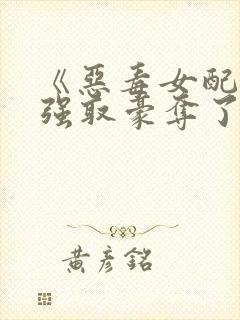 《惡毒女配
强取豪夺了
黄彦銘